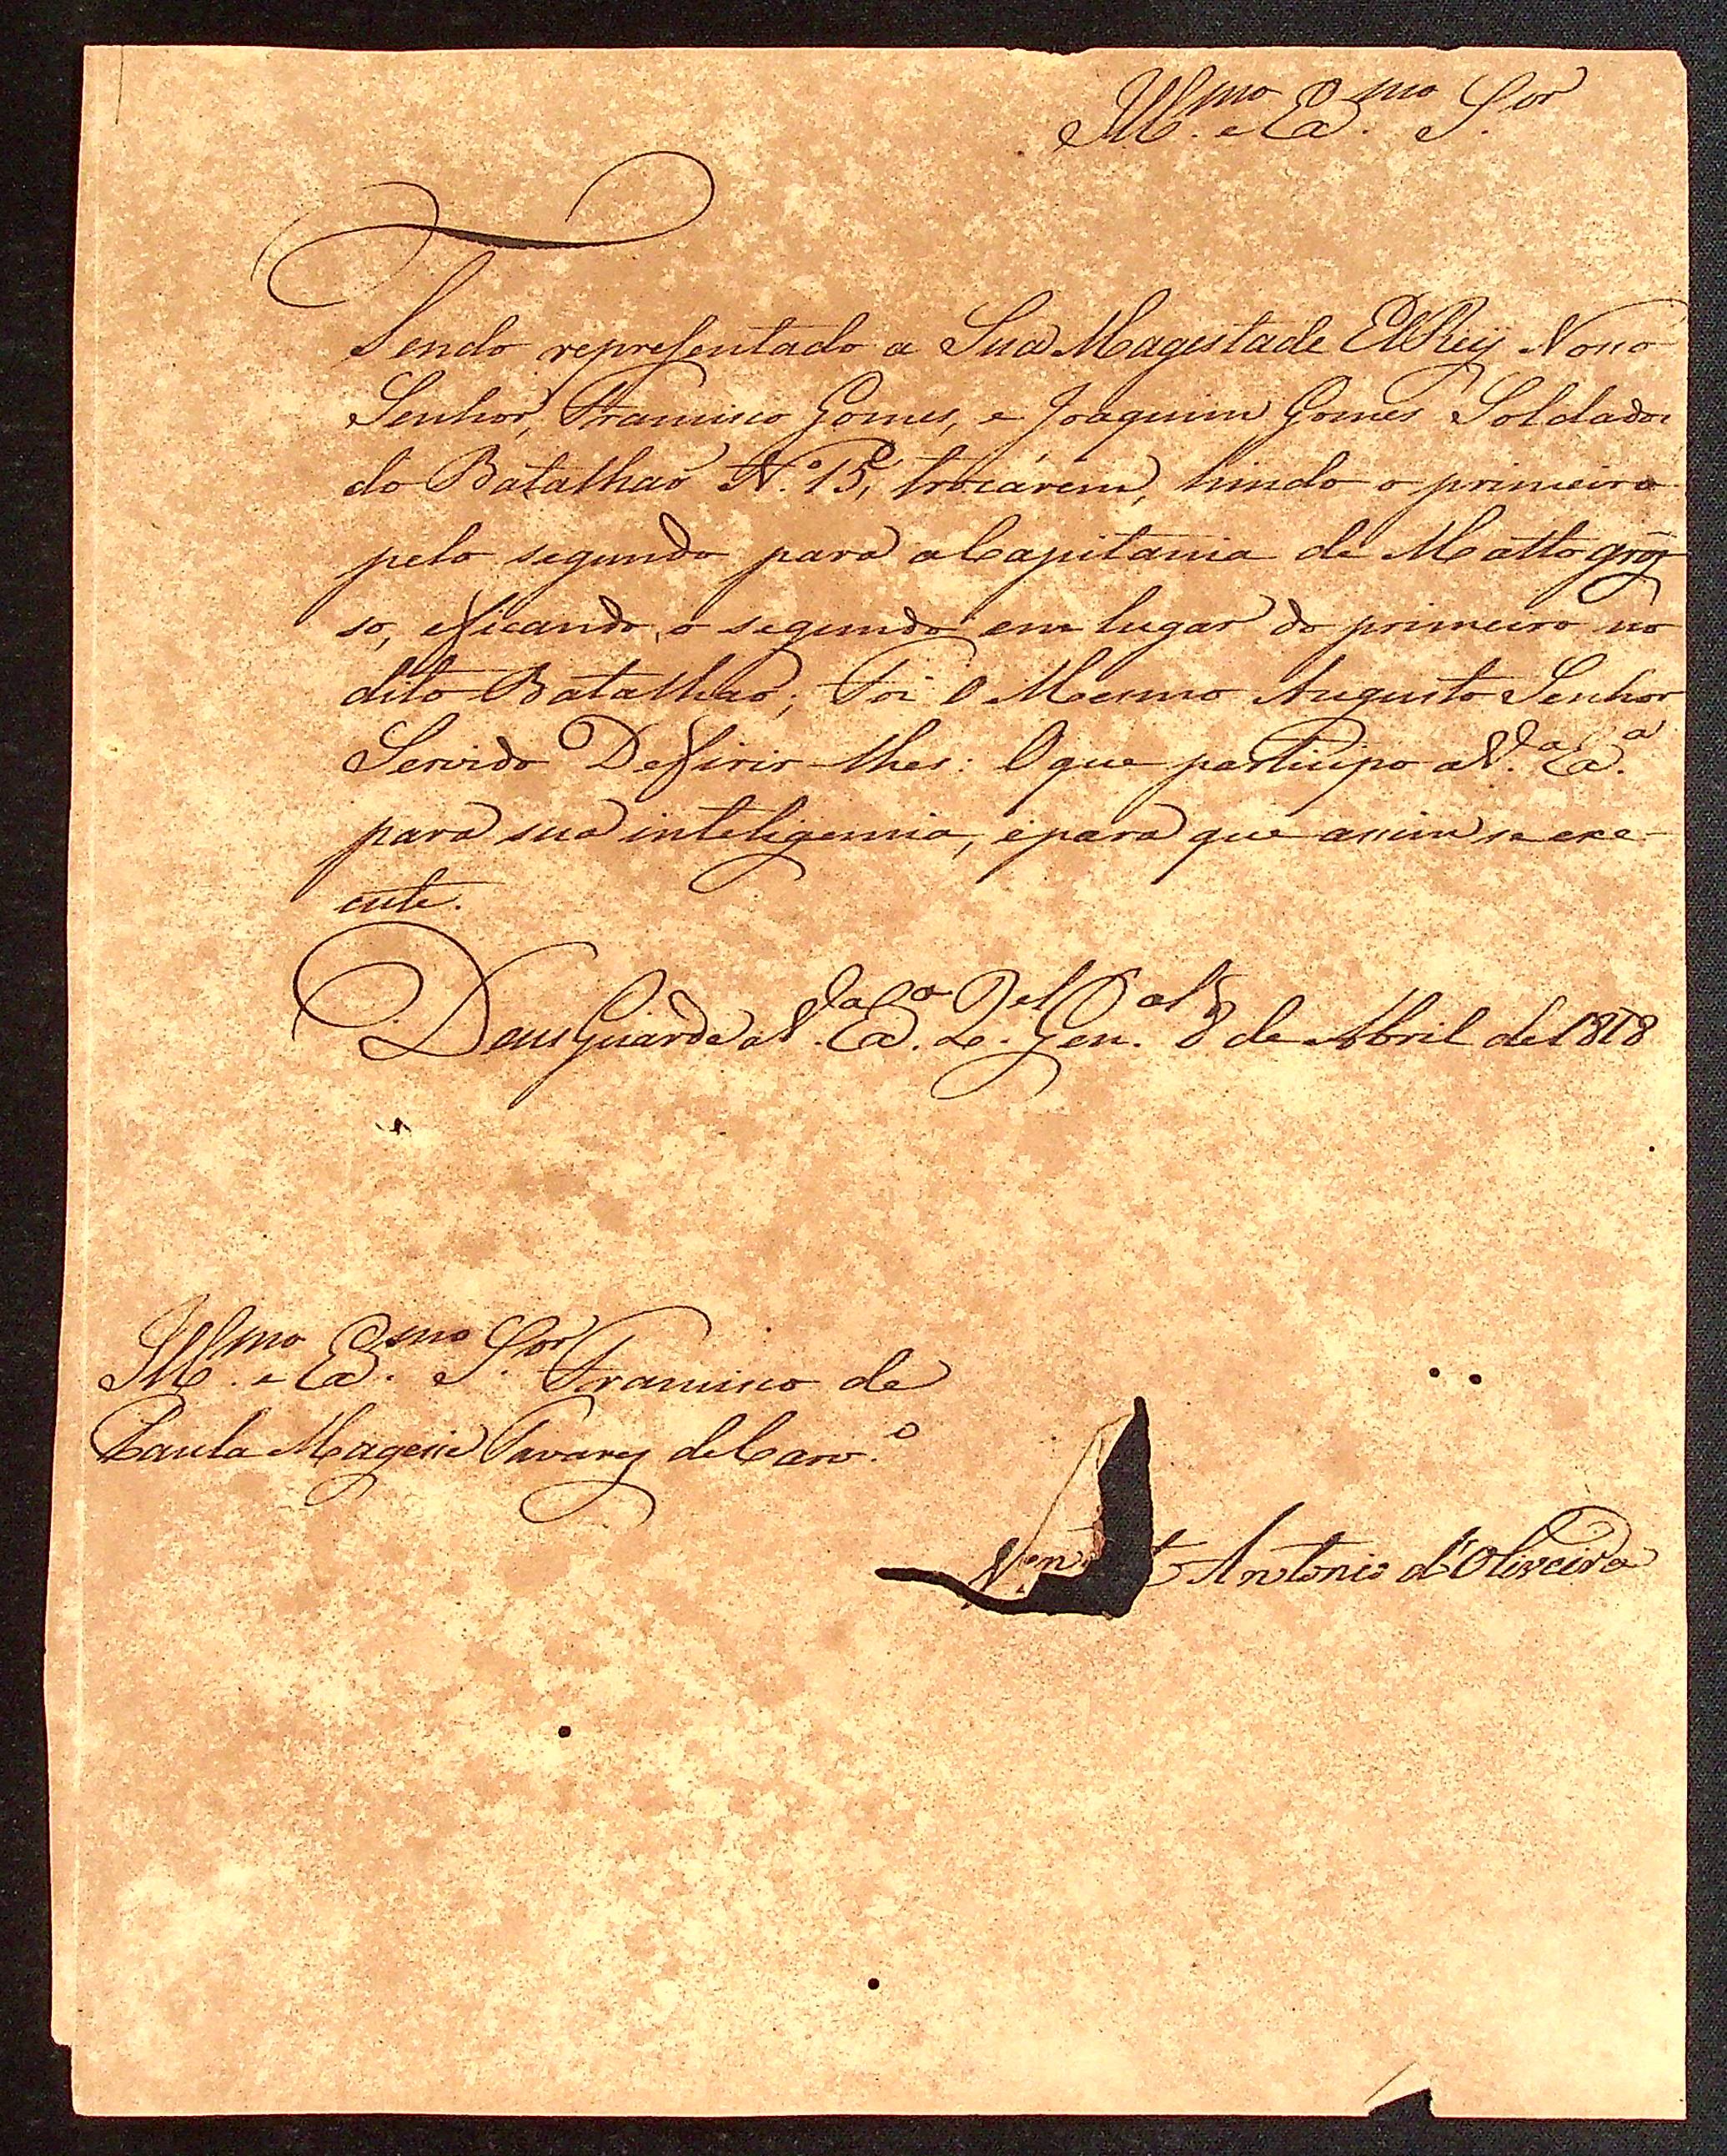 Ill.mo e Ex.mo S.or
Sendo representado a Sua Magestade ElRey Nosso
Senhor, Francisco Gomes, e Joaquim Gomes Soldados
do Batalhaõ N.º 15, trocárem, hindo o primeiro
pelo segundo para a Capitania de Matto gros
so, e ficando o segundo em lugar do primeiro no
dito Batalhaõ; Foi O Mesmo Augusto Senhor
Servido Defirir-lhes: O que participo a V.a Ex.a
para sua inteligencia, e para que assim se exe-
cute.
Deus Guarde a V.a Ex.a Q.el G.en.al 8 de Abril de 1818
Ill.mo e Ex.mo S.or Francisco de
Paula Magessi Tavares de Carv.º
Antonio d'Oliveira